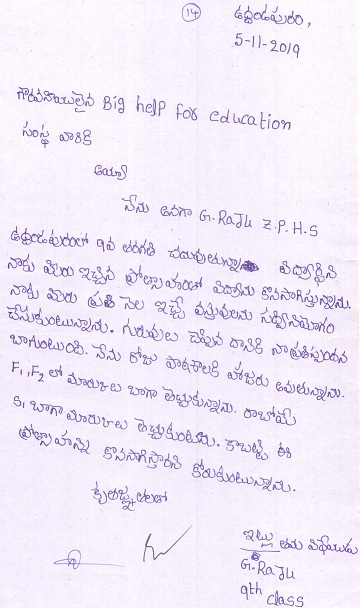 14
ఉద్దండపురం,
5-11-2019
గౌరవనీయులైన Big help for education
సంస్థ వారికి
అయ్యా
నేను అనగా G. RAJU Z.P.H.S
ఉద్దండపురంలో 9వ తరగతి చదువుతున్నా విద్యార్థిని
నాకు మీరు ఇచ్చిన ప్రోత్సాహంతో విద్యాను కొనసాగిస్తున్నాను.
నాకు మీరు ప్రతి నెల ఇచ్చే వస్తువులను సద్వినియోగం
చేసుకుంటున్నాను. గురువులు చెప్పిన దానికి నా ప్రతిస్పందన
బాగుంటుంది. నేను రోజు పాఠశాలకి హాజరు అవుతున్నాను.
F1, F2 లో మార్కులు బాగా తెచ్చుకున్నాను. రాబోయే
S1 బాగా మార్కులు తెచ్చుకుంటాను. కాబట్టి ఈ
ప్రోత్సాహన్ని కొనసాగిస్తారని కోరుకుంటున్నాను.
కృతజ్ఞతలతో
ఇట్లు తమ విధేయుడు
G. RAJU
9th class